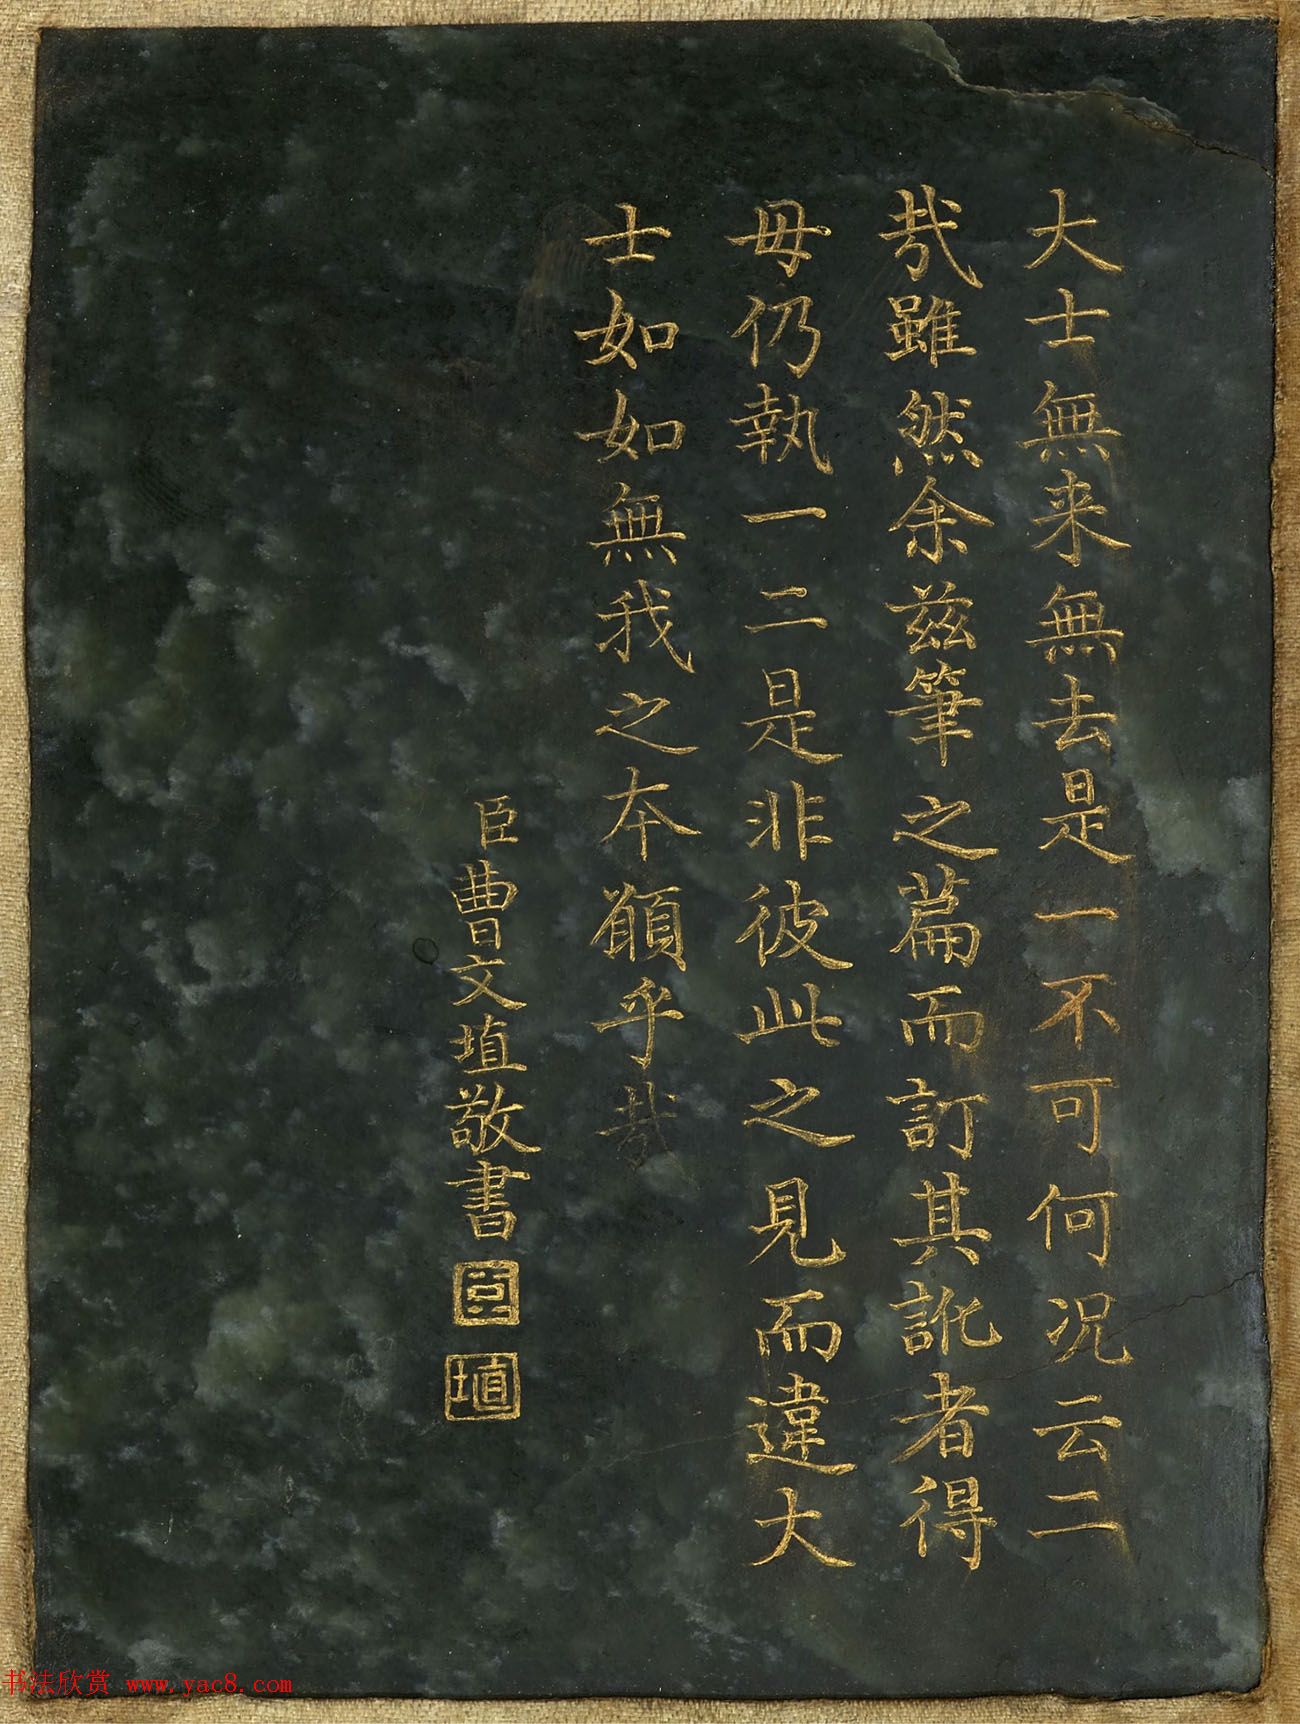 大士無来無去是一不可何况云二
㢤雖然余茲筆之篇而訂其訛者得
毋仍執一二是非彼此之見而違大
士如如無我之本願乎㢤
臣曹文埴敬書
臣
埴
书法欣赏 www.yac8.com